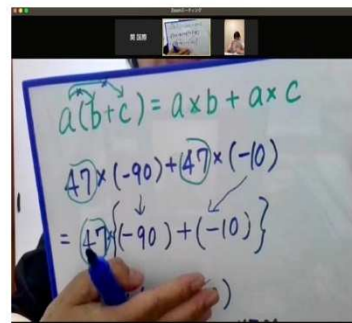 Zoomミーティング
a(b+c) = a×b + a×c
47×(-90)+47×(-10)
= 47×{(-90)+(-10)}
)